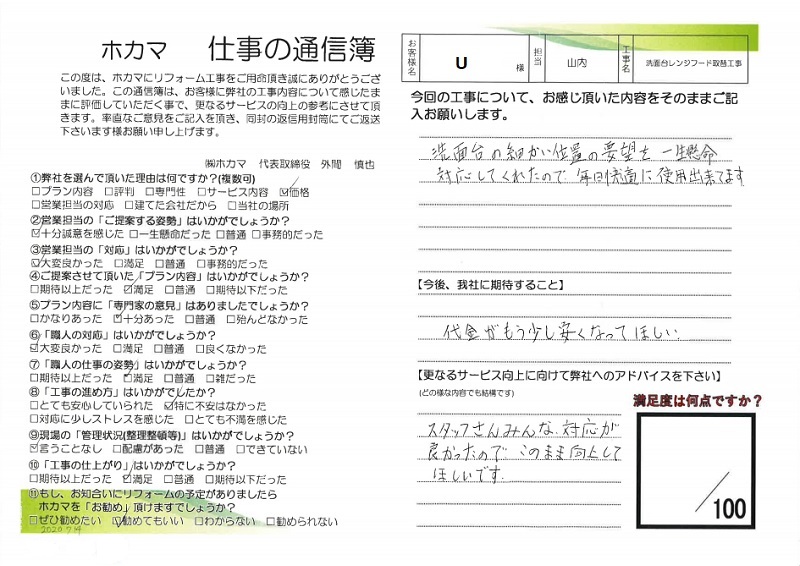 ホカマ 仕事の通信簿
この度は、ホカマにリフォーム工事をご用命頂き誠にありがとうござ
いました。この通信簿は、お客様に弊社の工事内容について感じたま
まに評価していただく事で、更なるサービスの向上の参考にさせて頂
きます。率直なご意見をご記入を頂き、同封の返信用封筒にてご返送
下さいます様お願い申し上げます。
㈱ホカマ 代表取締役 外間 慎也
①弊社を選んで頂いた理由は何ですか?(複数可)
□プラン内容 □評判 □専門性 □サービス内容 ☑価格
□営業担当の対応 □建てた会社だから □当社の場所
②営業担当の「ご提案する姿勢」はいかがでしょうか?
☑十分誠意を感じた □一生懸命だった □普通 □事務的だった
③営業担当の「対応」はいかがでしょうか?
☑大変良かった □満足 □普通 □事務的だった
④ご提案させて頂いた「プラン内容」はいかがでしょうか?
□期待以上だった ☑満足 □普通 □期待以下だった
⑤プラン内容に「専門家の意見」はありましたでしょうか?
□かなりあった ☑十分あった □普通 □殆んどなかった
⑥「職人の対応」はいかがでしょうか?
☑大変良かった □満足 □普通 □良くなかった
⑦「職人の仕事の姿勢」はいかがでしょうか?
□期待以上だった ☑満足 □普通 □雑だった
⑧「工事の進め方」はいかがでしたか?
□とても安心していられた ☑特に不安はなかった
□対応に少しストレスを感じた □とても不満を感じた
⑨現場の「管理状況(整理整頓等)」はいかがでしょうか?
☑言うことなし □配慮があった □普通 □できていない
⑩「工事の仕上がり」はいかがでしょうか?
□期待以上だった ☑満足 □普通 □期待以下だった
⑪もし、お知合いにリフォームの予定がありましたら
ホカマを「お勧め」頂けますでしょうか?
□ぜひ勧めたい ☑勧めてもいい □わからない □勧められない
2020.7.14
お客様名 U 様 担当 山内 工事名 洗面台レンジフード取替工事
今回の工事について、お感じ頂いた内容をそのままご記
入お願いします。
洗面台の細かい位置の要望を一生懸命
対応してくれたので 毎日快適に使用出来てます
【今後、我社に期待すること】
代金がもう少し安くなってほしい.
【更なるサービス向上に向けて弊社へのアドバイスを下さい】
(どの様な内容でも結構です)
スタッフさんみんな、対応が
良かったので このまま向上して
ほしいです.
満足度は何点ですか?
/100